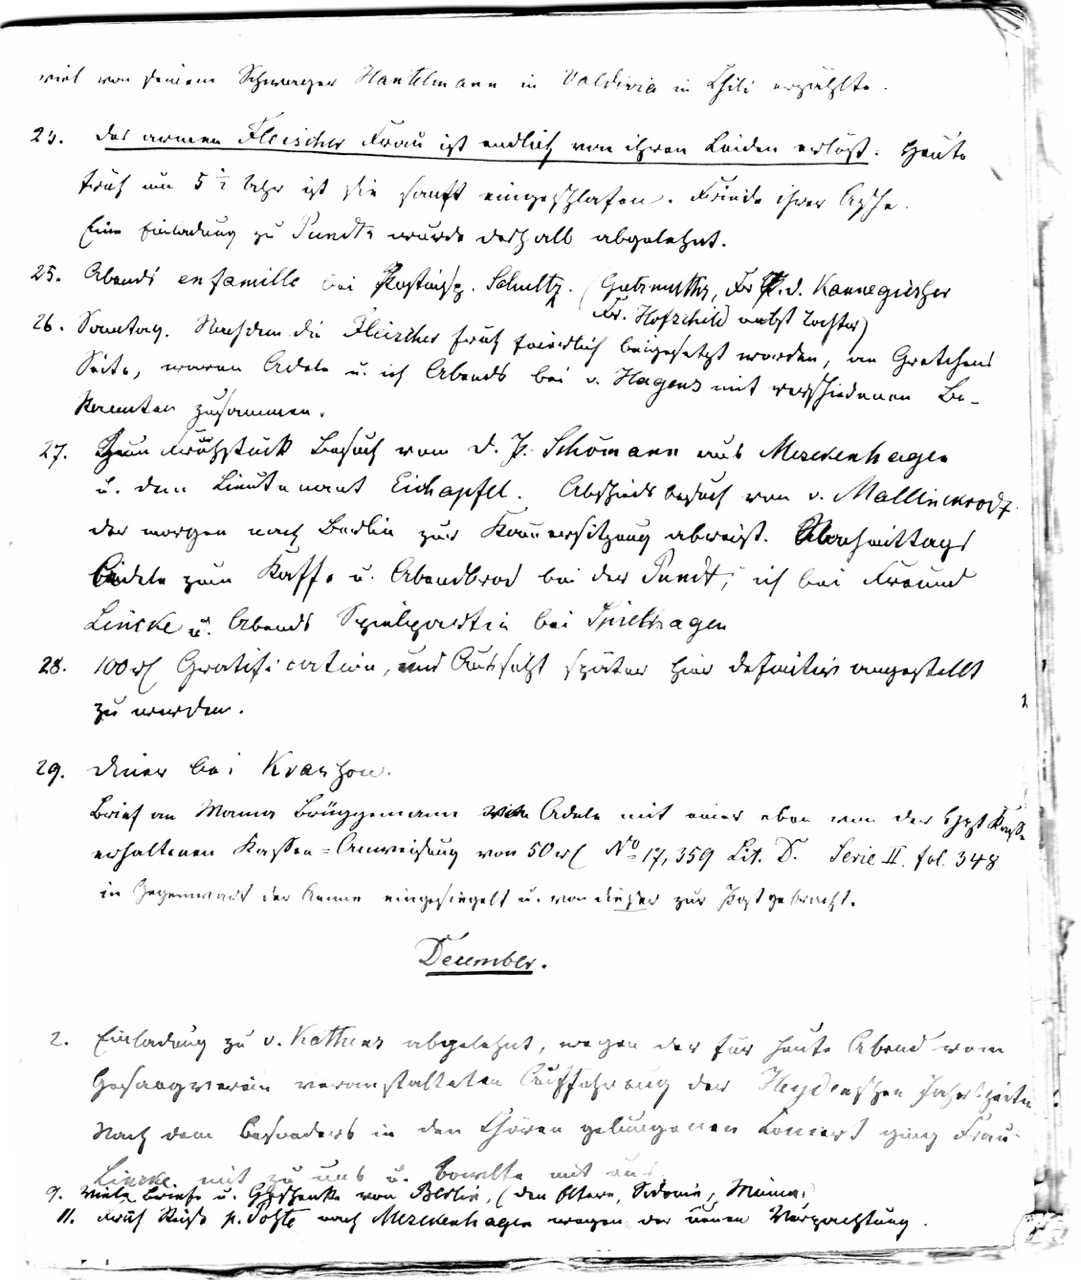 viel von seinem Schwager Hantelmann in Valdivia in Chili erzählte.
23. Des armen Fleischer Frau ist endlich von ihren Leiden erlöst. Heute
früh um 5 1/2 Uhr ist sie sanft eingeschlafen. Friede ihrer Asche.
Eine Einladung zu Pundts wurde deshalb abgelehnt.
25. Abends en famille bei Schultz. (Gutsmuths, Fr. v. d. Kannegießer
Fr. Hofschild nebst Tochter)
26. Sonntag. Nachdem die Fleischer früh feierlich beigesetzt worden, an Gretchens
Seite, waren Adele u. ich Abends bei v. Hagens mit verschiedenen Be-
kannten zusammen.
27. Zum Frühstück Besuch vom Schömann aus Meseckenhagen
u. dem Lieutenant Eichapfel. Abschiedsbesuch von v. Mallinckrodt
der morgen nach Berlin zur Kammersitzung abreist. Nachmittags
Adele zum Kaffe u. Abendbrod bei der Pundt, ich bei Freund
Lincke u. Abends Spielpartie bei Spielhagen
28. 100 rl Gratification, und Aussicht später hier definitiv angestellt
zu werden.
29. Diner bei
Brief an Mama Brüggemann von Adele mit einer eben von der Hpt Kasse
erhaltenen Kassen=Anweisung von 50 rl No 17,359 Lit. D. Serie II. fol. 348
in Gegenwart der eingesiegelt u. von dieser zur Post gebracht.
December.
2. Einladung zu v. Kathens abgelehnt, wegen der für heute Abend vom
Gesangverein veranstalteten Aufführung der Heydenschen Jahrszeiten
Nach dem besonders in den Chören gelungenen Concert ging Frau
Lincke mit zu uns u. bowlte mit aus.
9. Viele Briefe u. Geschenke von Berlin, (den Eltern, Sidonie, Mimi)
11. Früh Reise p. Poste nach Meseckenhagen wegen der neuen Verpachtung.